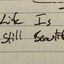 Life Is
Still Beautiful